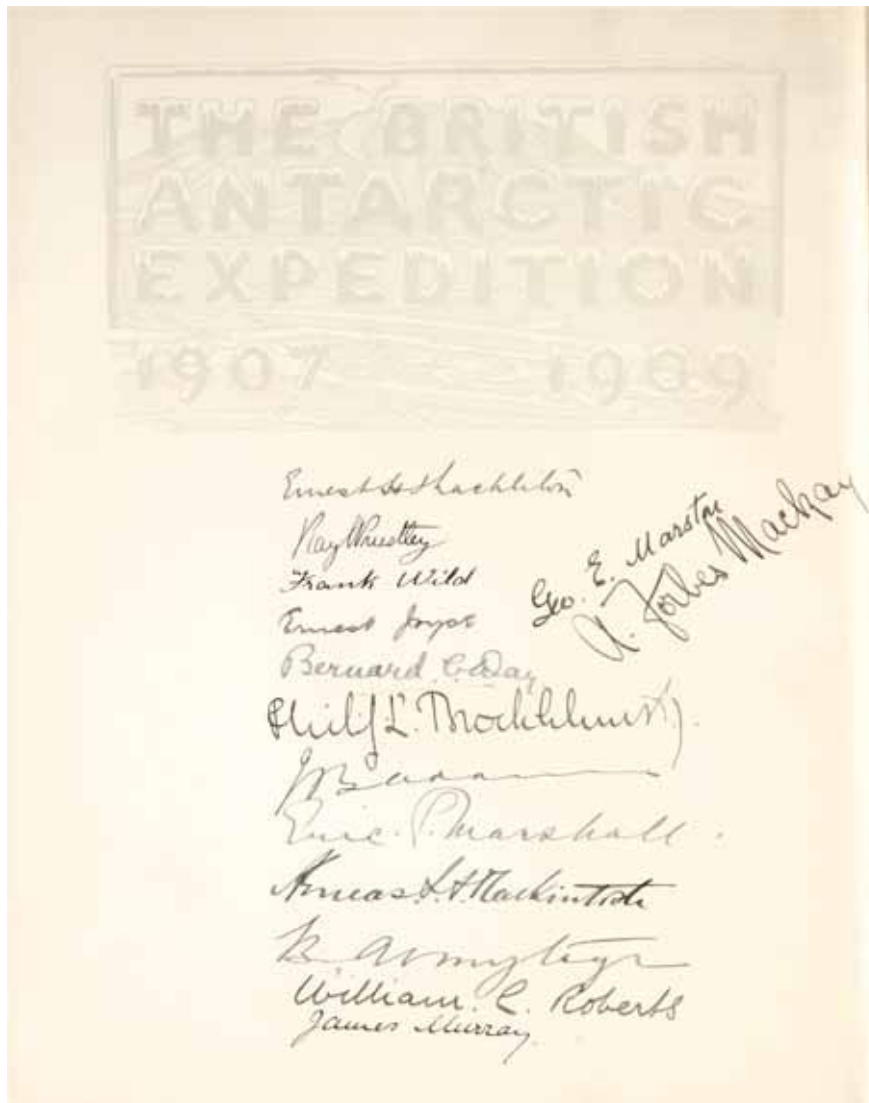 THE BRITISH
ANTARCTIC
EXPEDITION
1907 1909
Ernest H Shackleton
Raymond Priestley
Frank Wild
Ernest Joyce
Geo. E. Marston
A. Forbes Mackay
Bernard C. Day
Philip L. Brocklehurst
JB Adams
Eric. P. Marshall.
Aeneas L. A. Mackintosh
B Armytage
William. C. Roberts
James Murray.